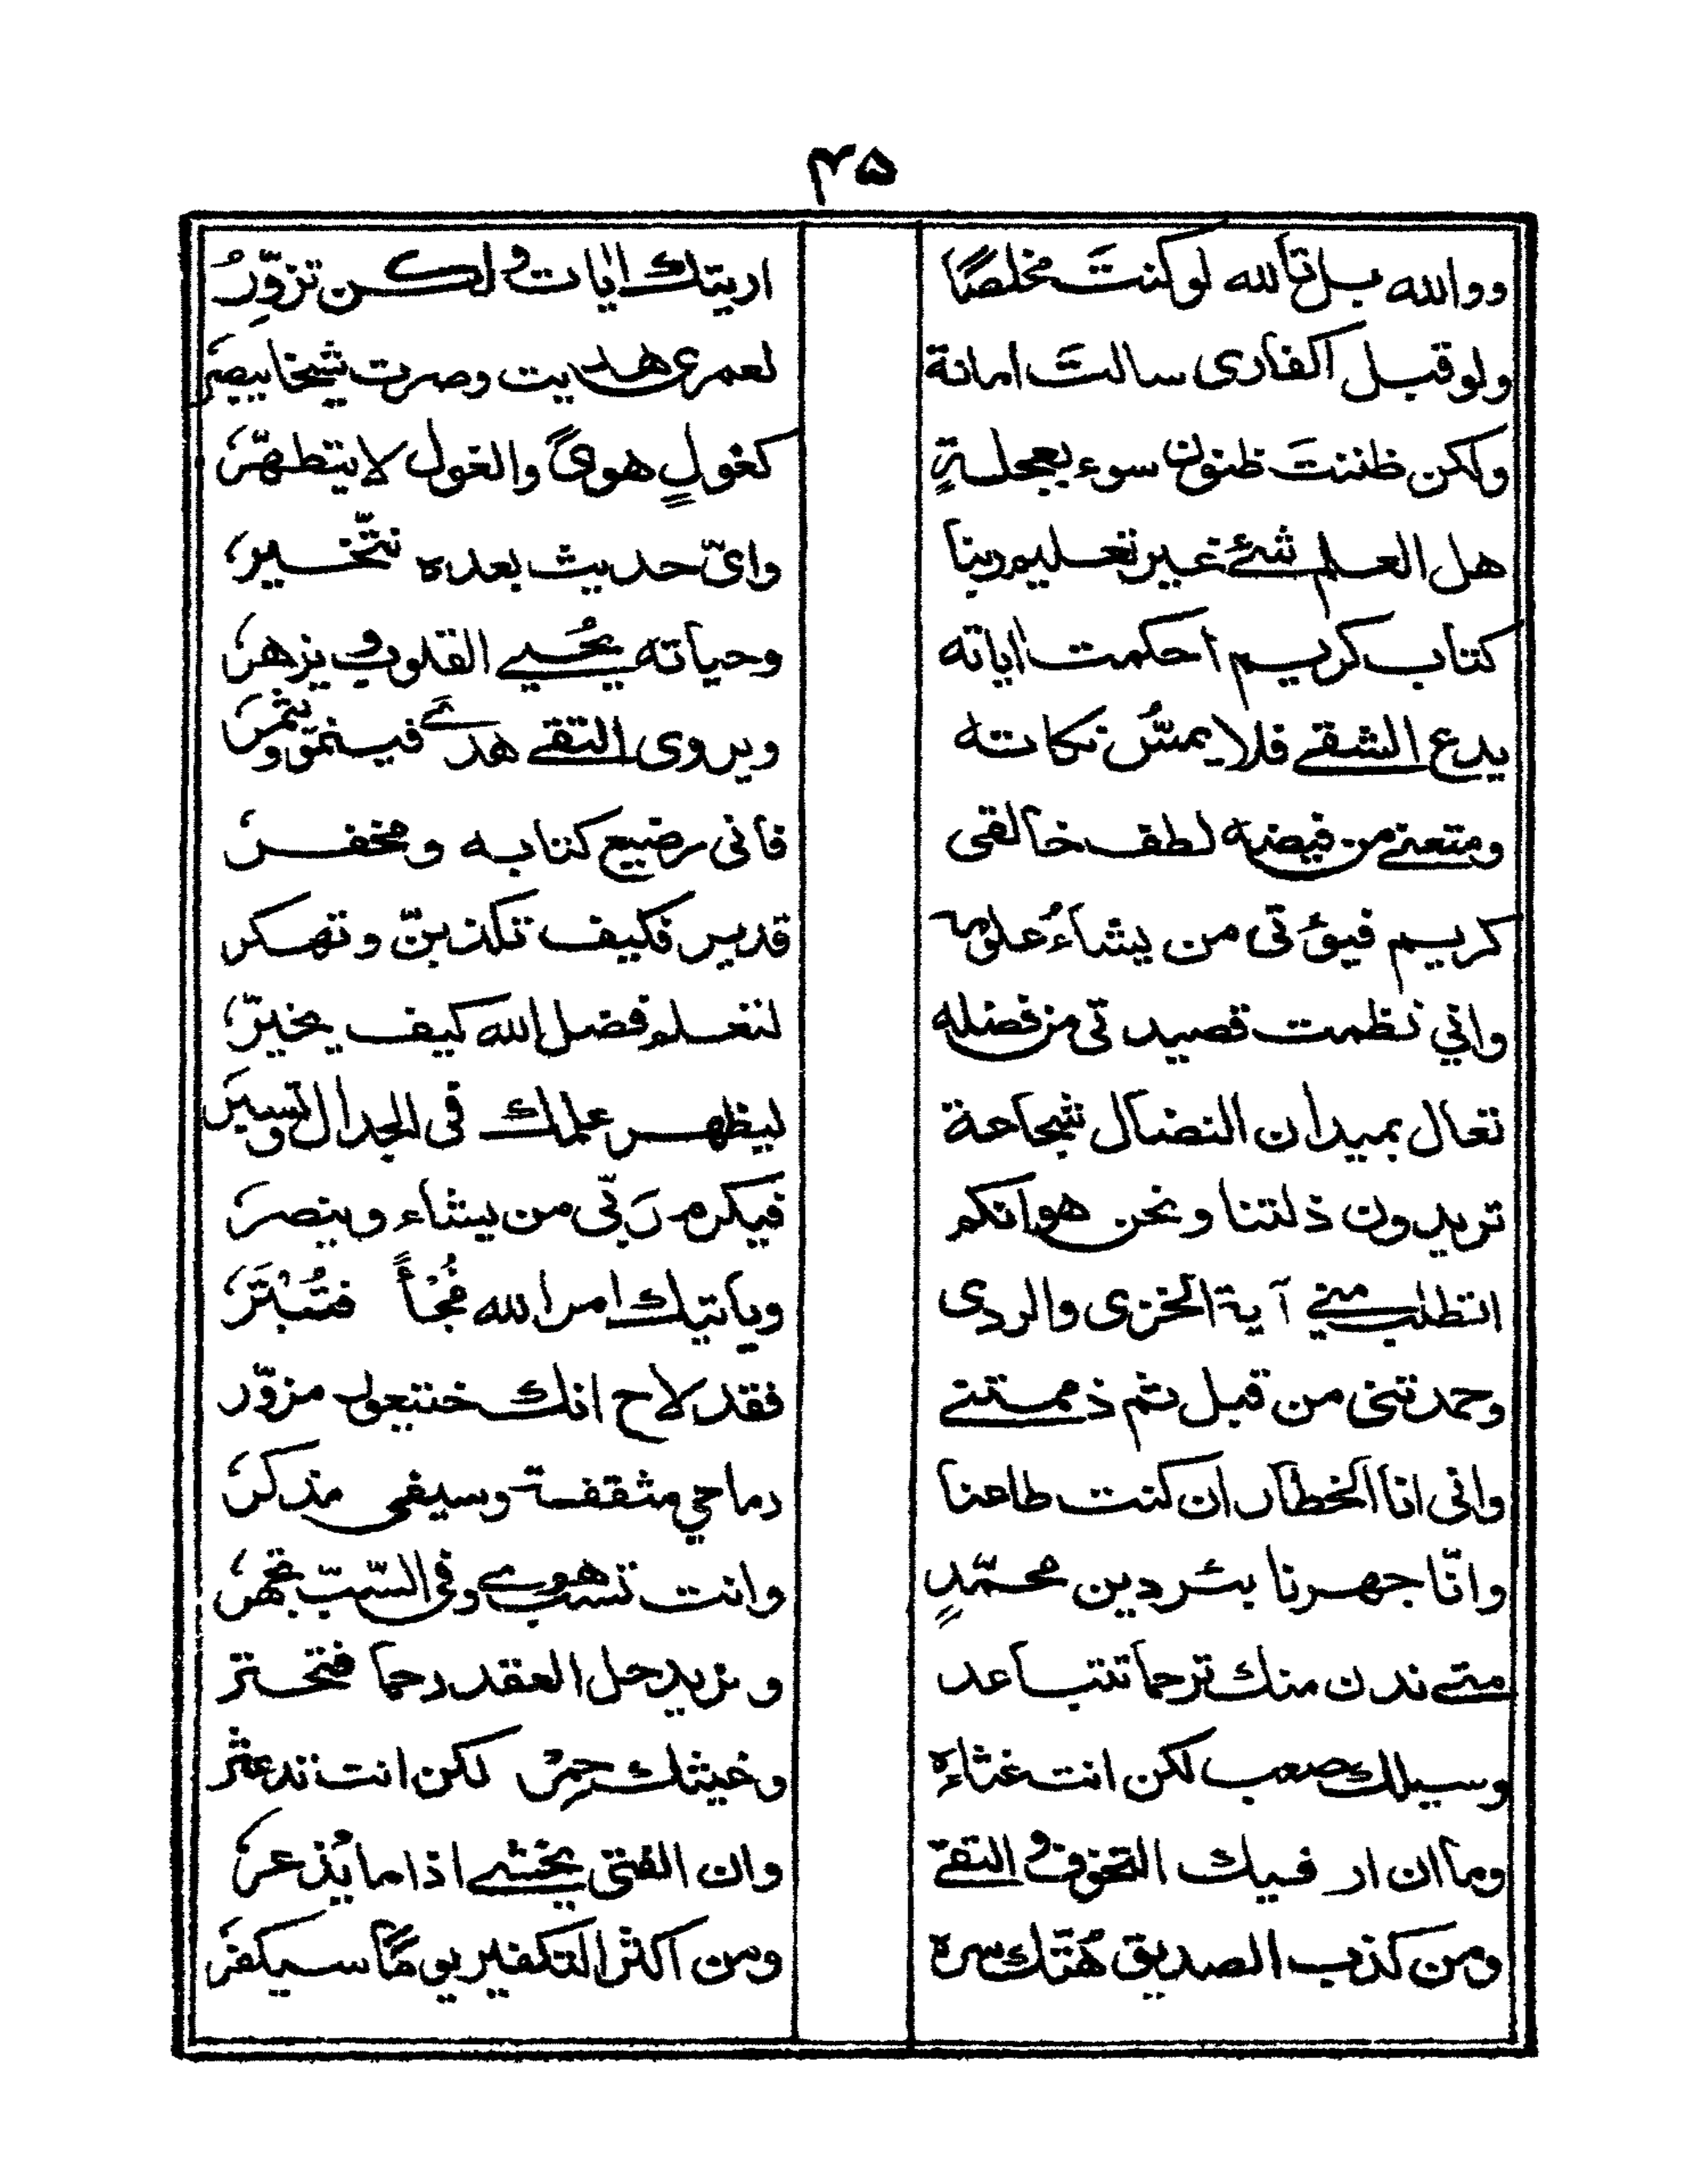 ۴۵
ووالله بل تالله لو کنتَ مخلصًا اریتك اٰیات ولکن تزوِّرُ
ولو قبل اکفاری سالتَ امانة لعمری هدیت وصرت شیخا یبصرَ
ولکن ظننتَ ظنون سوء بعجلةٍ کغولٍ هویً والغول لا یتطهّرَ
هل العلم شئ غیر تعلیم ربنا وایّ حدیث بعده نتّخیرَ
کتاب کریم احکمت اٰیاته وحیاته یُحیی القلوب ویزهرَ
یدع الشقے فلا یمسُّ نکاته ویروی التقے هدےً فینمو ویثمرَ
ومتعنے من فیضه لطف خالقی فانی رضیع کتابه ومخفرَ
کریم فیؤتی من یشاءُ علومه قدیر فکیف تکذبنّ وتهکر
وانی نظمت قصیدتی من فضله لتعلم فضل الله کیف یخیرّ
تعال بمیدان النضال شجاعة لیظهر علمك فی الجدال وتسبرَ
تریدون ذلتنا ونحن هوانکم فیکرم رَبّی من یشاء وینصرَ
اتطلب منی آیة الخزی والردی ویاتیك امر الله فُجْأً فتُبْتَرَ
وحمدتنی من قبل ثم ذممتنے فقد لاح انك خنتعول مزوّر
وانی انا الخطّار ان کنت طاعنا رماحی مثقفة وسیفی مذکرَ
وانّا جهرنا بئر دین محمّدٍ وانت تسبّ هوے وفی السّبّ تجهرَ
متے ندن منك ترحما تتباعد ونرید حل العقد رحما فتحتر
وسیلك صعب لکن انت غثاءه وغیثك حِمِرٌ لکن انت تدعثر
وما ان ار فیك التخوف والتقے وان الفتی یخشے اذا ما یُذعرَ
ومن کذب الصدیق هُتّك سره ومن اکثر التکفیر یومًا سیکفرَ